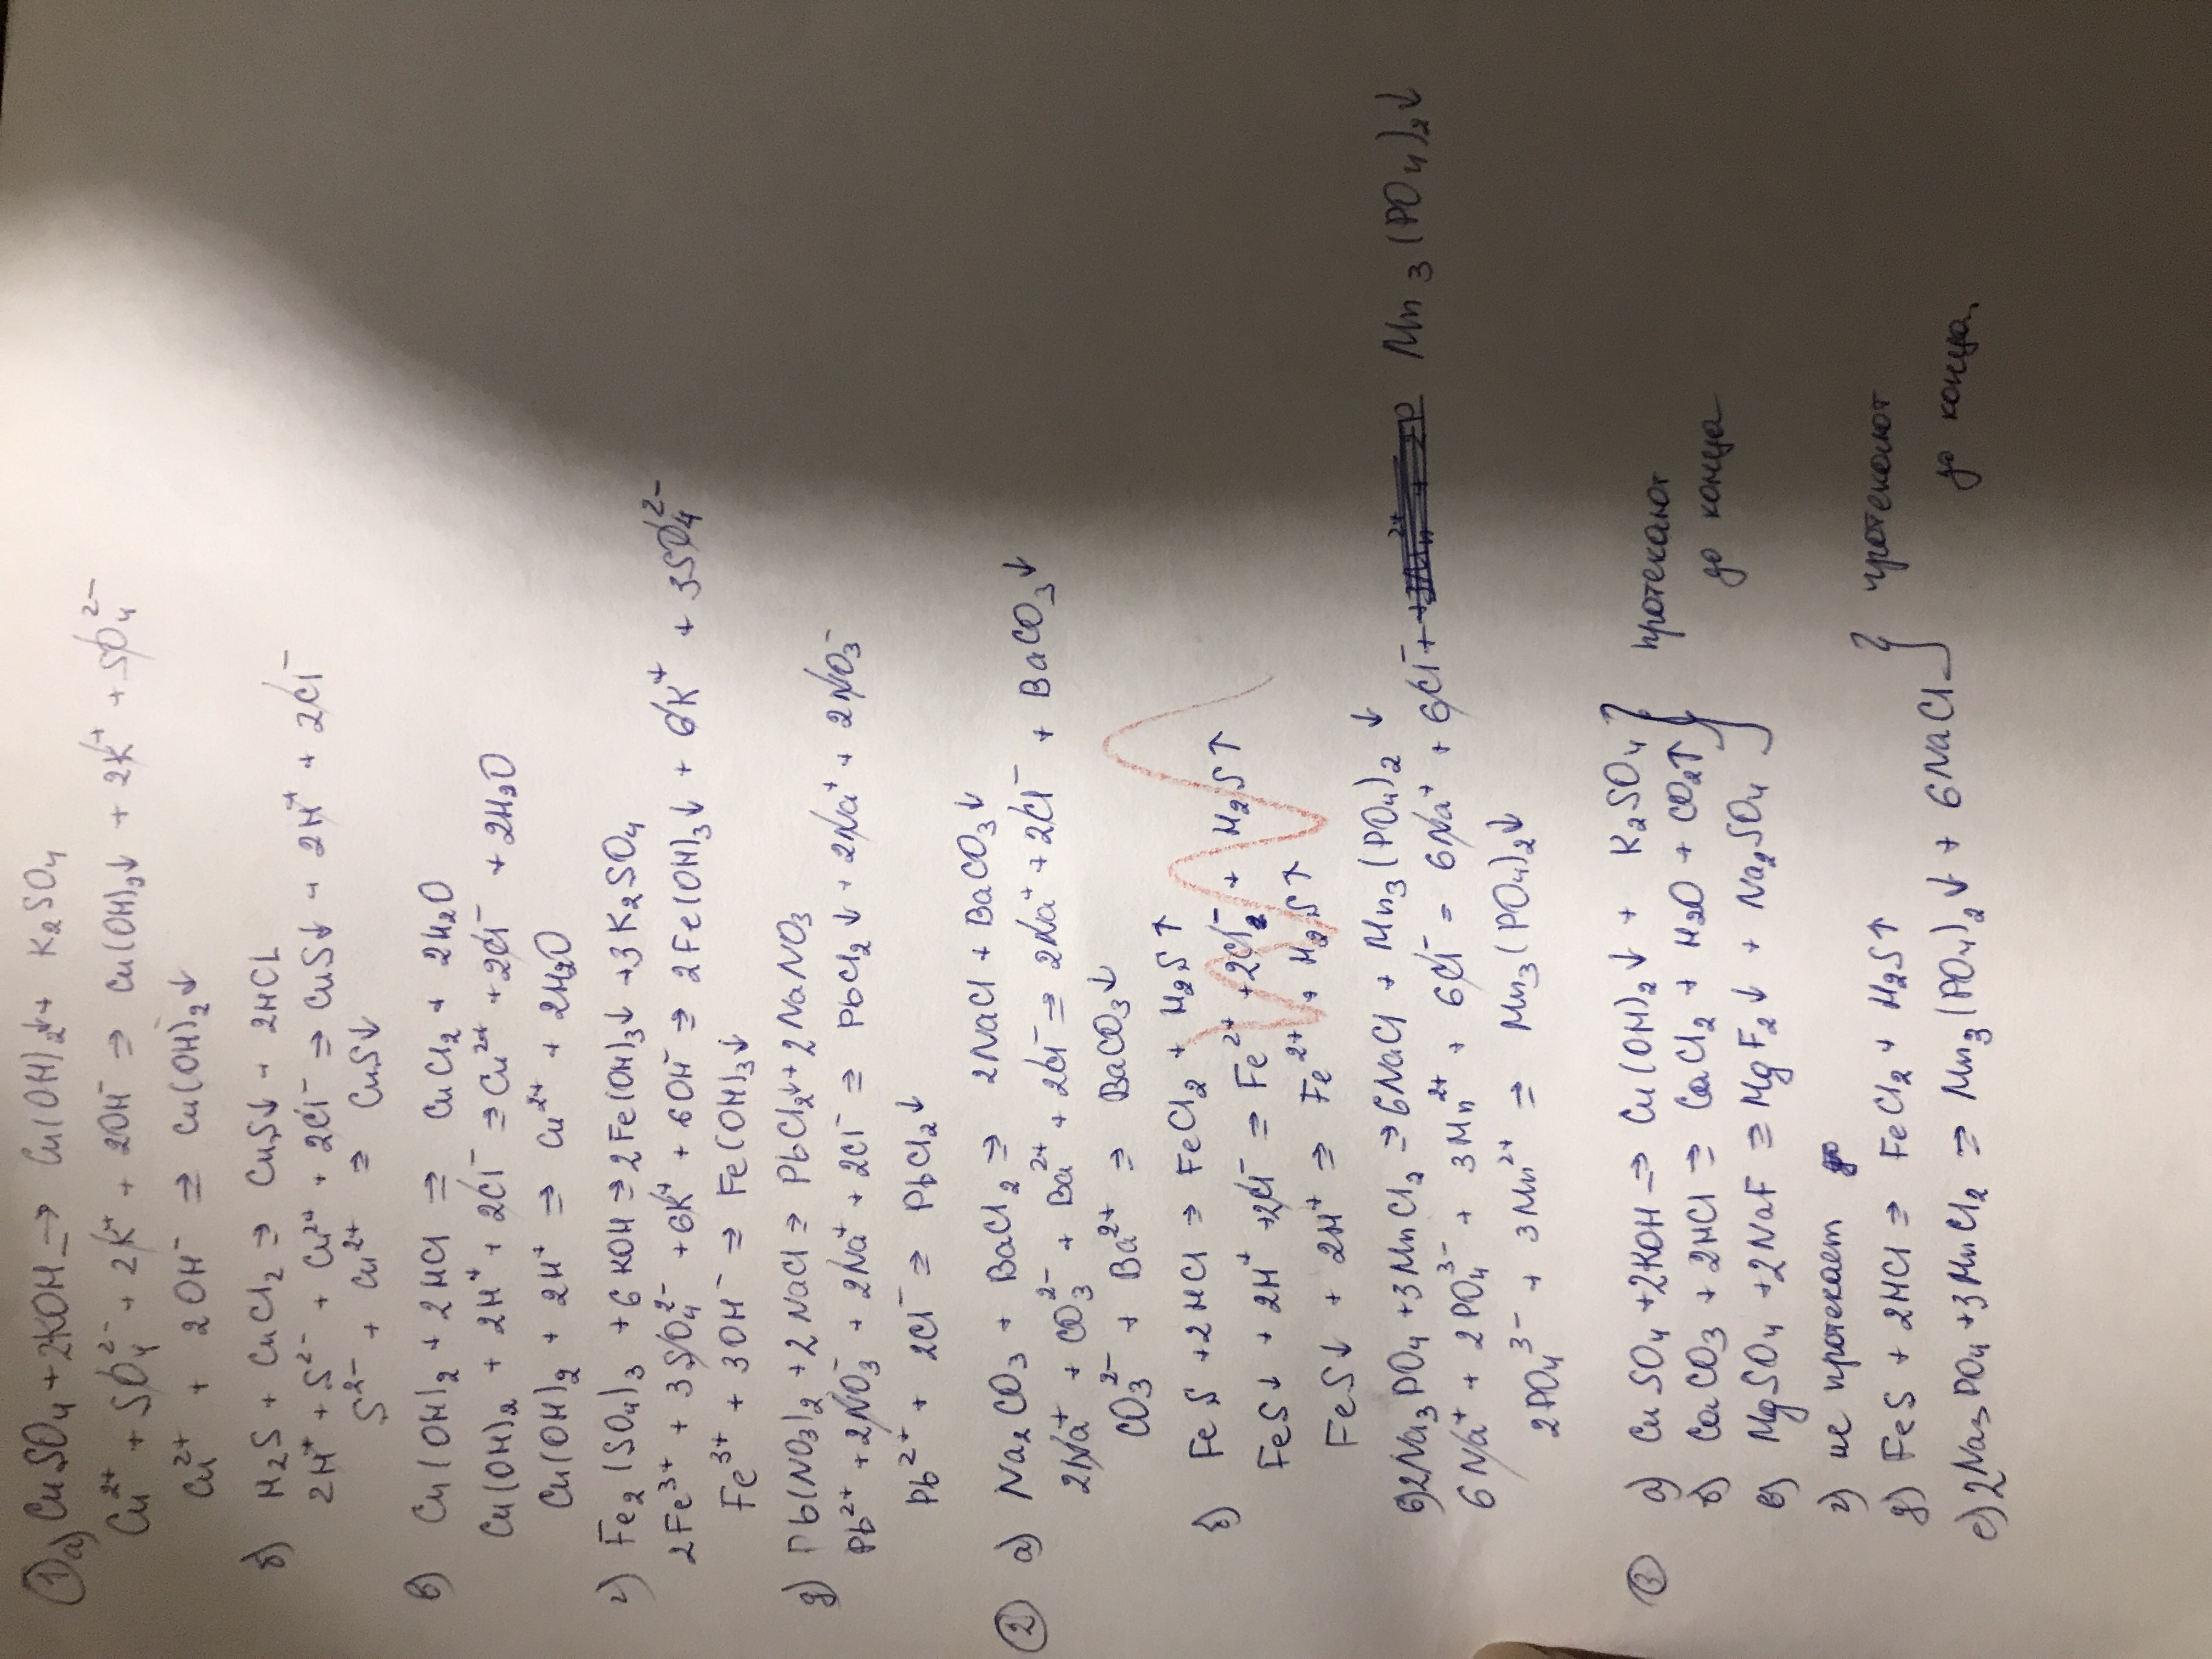 ① а) CuSO4 + 2KOH => Cu(OH)2↓ + K2SO4
Cu2+ + SO4 2- + 2K+ + 2OH- => Cu(OH)2↓ + 2K+ + SO4 2-
Cu2+ + 2OH- => Cu(OH)2↓
б) H2S + CuCl2 => CuS↓ + 2HCl
2H+ + S2- + Cu2+ + 2Cl- => CuS↓ + 2H+ + 2Cl-
S2- + Cu2+ => CuS↓
в) Cu(OH)2 + 2HCl => CuCl2 + 2H2O
Cu(OH)2 + 2H+ + 2Cl- => Cu2+ + 2Cl- + 2H2O
Cu(OH)2 + 2H+ => Cu2+ + 2H2O
г) Fe2(SO4)3 + 6KOH => 2Fe(OH)3↓ + 3K2SO4
2Fe3+ + 3SO4 2- + 6K+ + 6OH- => 2Fe(OH)3↓ + 6K+ + 3SO4 2-
Fe3+ + 3OH- => Fe(OH)3↓
д) Pb(NO3)2 + 2NaCl => PbCl2↓ + 2NaNO3
Pb2+ + 2NO3- + 2Na+ + 2Cl- => PbCl2↓ + 2Na+ + 2NO3-
Pb2+ + 2Cl- => PbCl2↓
② а) Na2CO3 + BaCl2 => 2NaCl + BaCO3↓
2Na+ + CO3 2- + Ba2+ + 2Cl- => 2Na+ + 2Cl- + BaCO3↓
CO3 2- + Ba2+ => BaCO3↓
б) FeS + 2HCl => FeCl2 + H2S↑
FeS↓ + 2H+ + 2Cl- => Fe2+ + 2Cl- + H2S↑
FeS↓ + 2H+ => Fe2+ + H2S↑
в) 2Na3PO4 + 3MnCl2 => 6NaCl + Mn3(PO4)2↓
6Na+ + 2PO4 3- + 3Mn2+ + 6Cl- = 6Na+ + 6Cl- + Mn3(PO4)2↓
2PO4 3- + 3Mn2+ => Mn3(PO4)2↓
③ а) CuSO4 + 2KOH => Cu(OH)2↓ + K2SO4 } протекают
б) CaCO3 + 2HCl => CaCl2 + H2O + CO2↑ до конца
в) MgSO4 + 2NaF => MgF2↓ + Na2SO4
г) не протекает
д) FeS + 2HCl => FeCl2 + H2S↑ } протекают
е) 2Na3PO4 + 3MnCl2 => Mn3(PO4)2↓ + 6NaCl до конца.